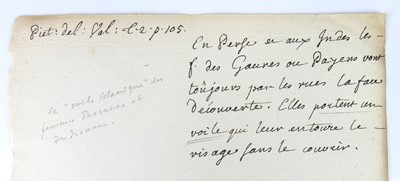 Piet: del: Val: t. 2. p. 105.
En Perse et aux Indes les
f. des Gaures ou Payens vont
toûjours par les rues la face
Découverte. Elles portent un
voile qui leur entoure le
visage sans le couvrir.
le "voile islamique" des
femmes Persanes et
Indiennes.